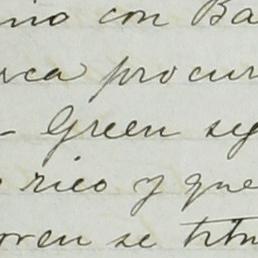 ino con Ba
rca procur
- Green seg
rico y que
oren se titu